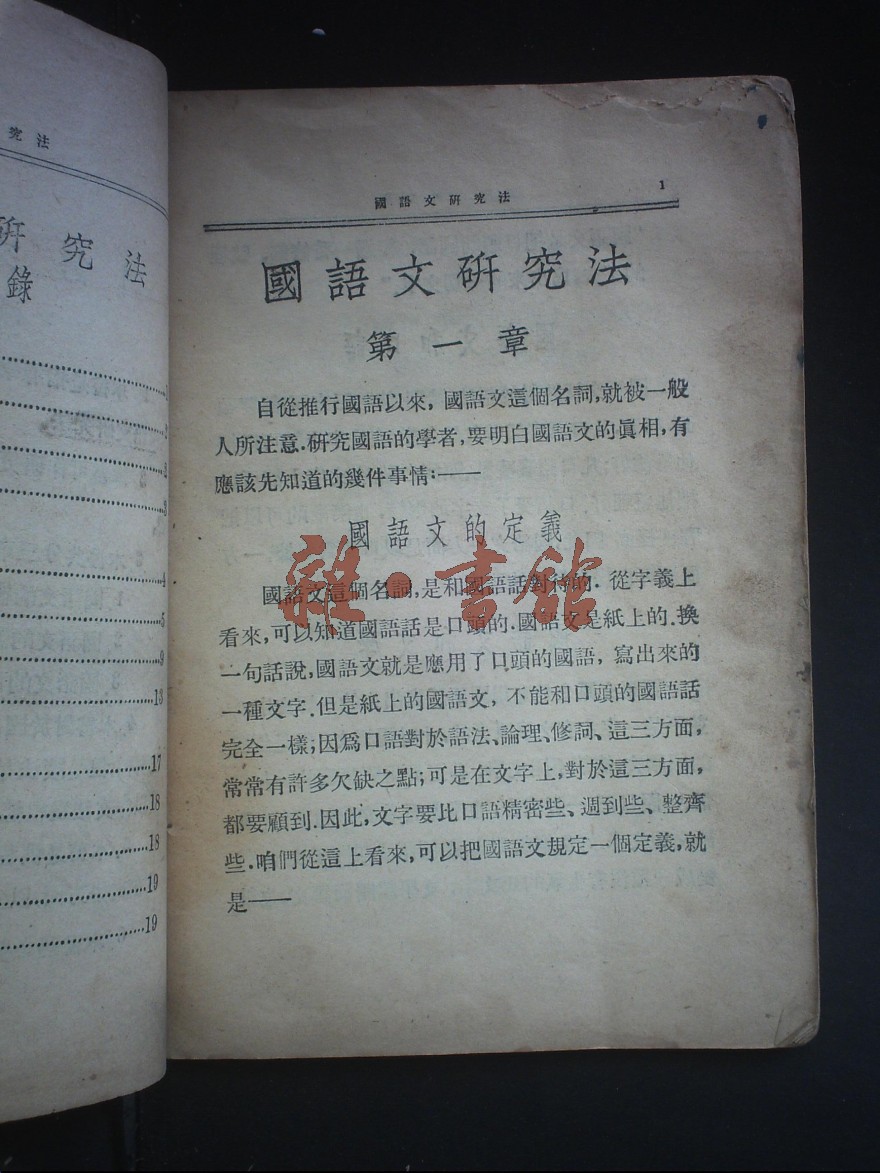 究法
研究法
錄
1
2
2
3
4
5
9
13
17
18
18
19
19
國語文研究法 1
國語文研究法
第一章
自從推行國語以來, 國語文這個名詞,就被一般
人所注意.研究國語的學者,要明白國語文的眞相,有
應該先知道的幾件事情:——
國語文的定義
國語文這個名詞,是和國語話對待的. 從字義上
看來,可以知道國語話是口頭的.國語文是紙上的.換
一句話說,國語文就是應用了口頭的國語, 寫出來的
一種文字.但是紙上的國語文, 不能和口頭的國語話
完全一樣;因爲口語對於語法、論理、修詞、這三方面,
常常有許多欠缺之點;可是在文字上,對於這三方面,
都要顧到.因此,文字要比口語精密些、週到些、整齊
些.咱們從這上看來,可以把國語文規定一個定義,就
是——
雜·書館